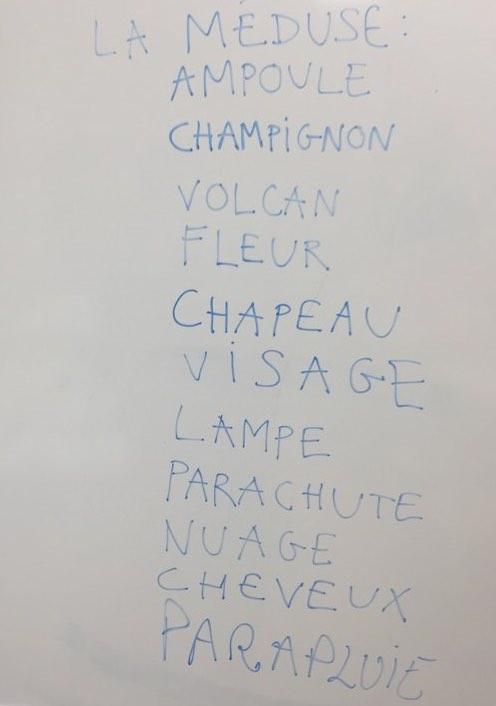 LA MÉDUSE:
AMPOULE
CHAMPiGNON
VOLCAN
FLEUR
CHAPEAU
ViSAGE
LAMPE
PARACHUTE
NUAGE
CHEVEUX
PARAPLUiE